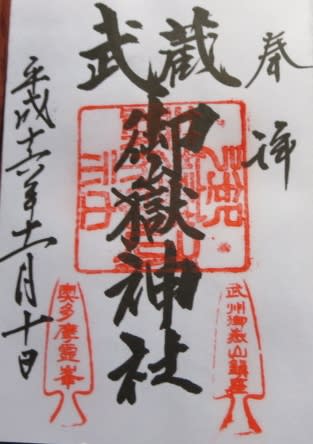 奉拝
武蔵
御嶽神社
平成十六年十一月十日
武州御嶽山鎮座
奥多摩霊峯